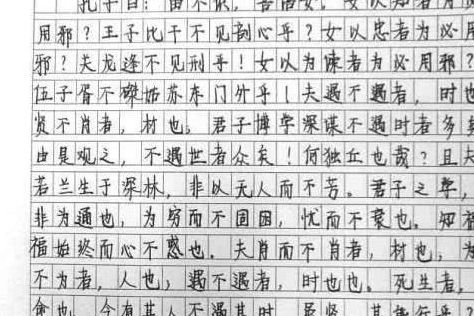 孔子曰：由不识，吾语女。女以知者为必
用邪？王子比干不见剖心乎？女以忠者为必用
邪？关龙逢不见刑乎！女以为谏者为必用邪？
伍子胥不磔姑苏东门外乎！夫遇不遇者，时也
贤不肖者，材也。君子博学深谋不遇时者多
由是观之，不遇世者众矣！何独丘也哉？且夫
若兰生于深林，非以无人而不芳。君子之学，
非为通也，为穷而不困，忧而不衰也。知祸
福始终而心不惑也。夫贤而不肖者，材也，为
不为者，人也；遇不遇者，时也也。死生者，
命也。今有其人不遇其时，虽贤，其能行乎